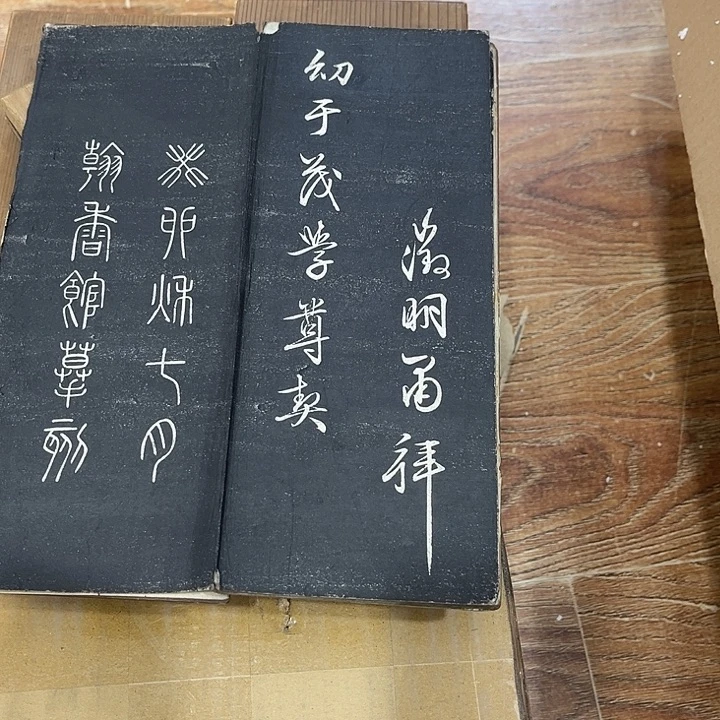 徵明再拜
幼于茂学尊契
癸卯秌七月
翰香館摹刻